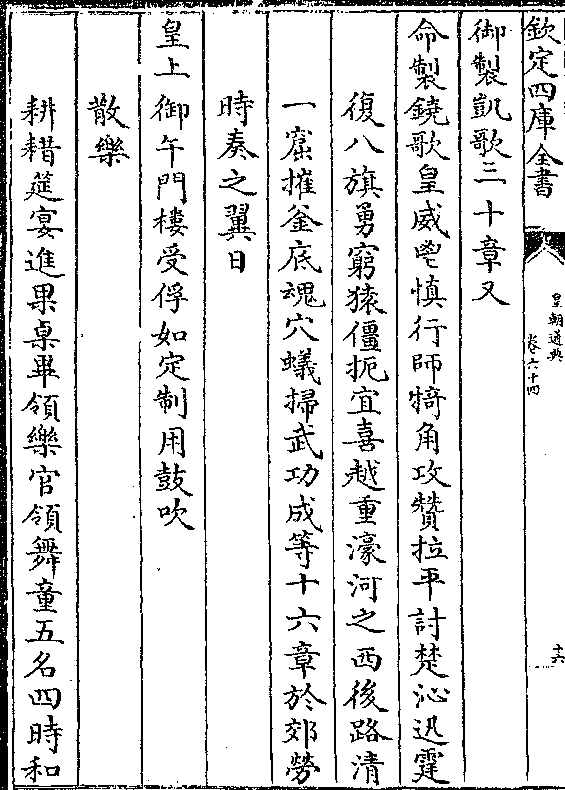 欽定四庫全書
皇朝通典
卷六十四
十六
御製凱歌三十章又
命製鐃歌皇威鬯慎行師犄角攻贊拉平討楚沁迅霆
復八旗勇窮猿僵扼宜喜越重濠河之西後路清
一窟摧釡底魂穴蟻掃武功成等十六章於郊勞
時奏之翼日
皇上御午門樓受俘如定制用鼓吹
散樂
耕耤筵宴進果桌畢領樂官領舞童五名四時和